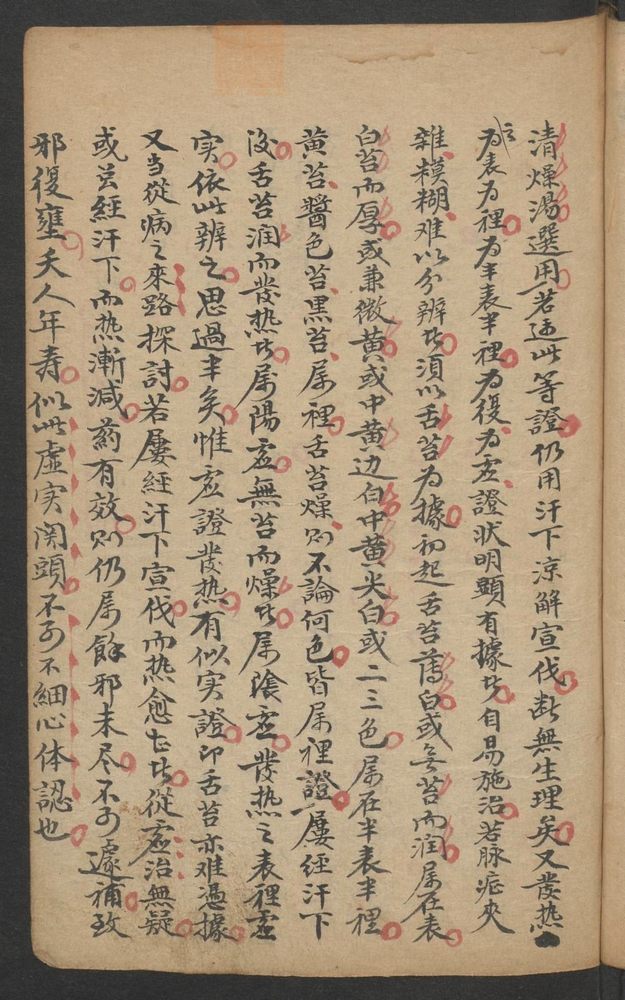 清燥湯選用若遇此等證仍用汗下涼解宣伐断無生理矣又發热
之为表为裡为半表半裡为復为虚證状明顕有據者自易施治若脉症夹
雜模糊难以分辨者須以舌苔为據初起舌苔薄白或無苔而潤属在表
白苔而厚或兼微黄或中黄边白中黄尖白或二三色属在半表半裡
黄苔醬色苔黑苔属裡舌苔燥则不論何色皆属裡證屢經汗下
後舌苔润而發热者属陽虚無苔而燥者属陰虚發热之表裡虚
实依此辨之思過半矣惟虚證發热有似实證即舌苔亦难憑據
又当從病之來路探討若屢經汗下宣伐而热愈甚者從虚治無疑
或曽經汗下而热漸減葯有效则仍属餘邪未尽不可遽補致
邪復壅夭人年寿似此虚实関頭不可不細心体認也